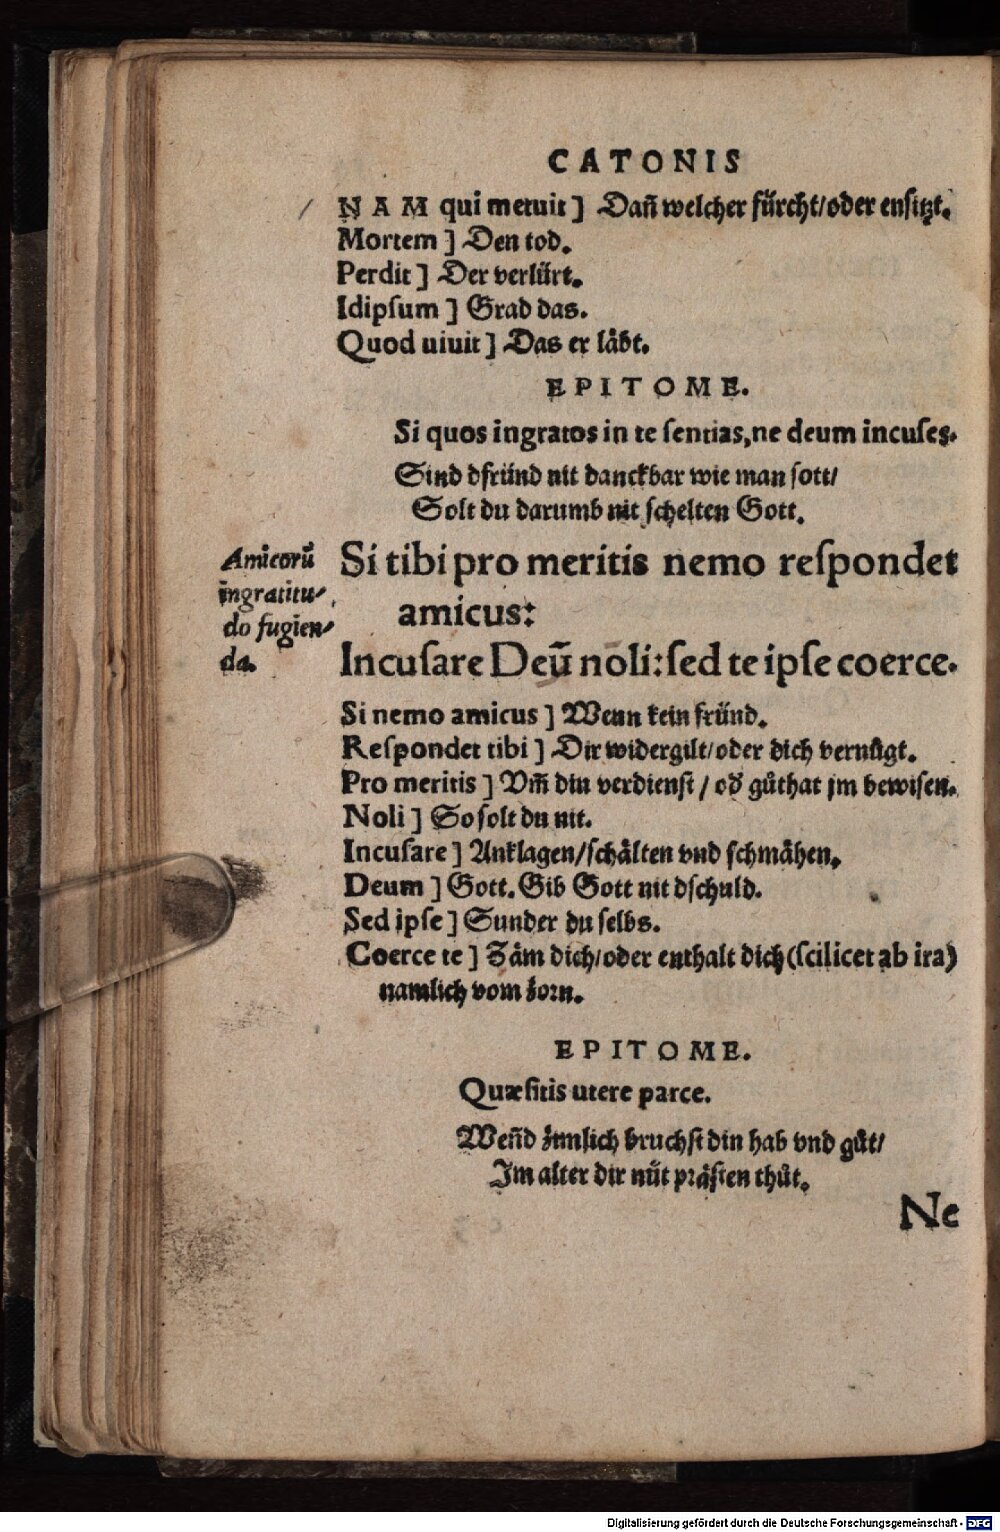 CATONIS
NAM qui metuit] Dañ welcher fürcht/oder ensitzt.
Mortem] Den tod.
Perdit] Der verlürt.
Idipſum] Grad das.
Quod uiuit] Das er läbt.
EPITOME.
Si quos ingratos in te ſentias,ne deum incuſes.
Sind dfründ nit danckbar wie man ſott/
Solt du darumb nit ſchelten Gott.
Amicorū
ingratitu-
do fugien-
da.
Si tibi pro meritis nemo reſpondet
amicus:
Incuſare Deū noli: ſed te ipſe coerce.
Si nemo amicus] Wenn kein fründ.
Reſpondet tibi] Dir widergilt/oder dich vernůgt.
Pro meritis] Vm̃ din verdienſt / od' gůthat jm bewiſen.
Noli] So ſolt du nit.
Incuſare] Anklagen/ſchälten vnd ſchmähen.
Deum] Gott. Gib Gott nit dſchuld.
Sed ipſe] Sunder du ſelbs.
Coerce te] Zäm dich/oder enthalt dich (ſcilicet ab ira)
namlich vom zorn.
EPITOME.
Quæſitis utere parce.
Wen̄d zimlich bruchſt din hab vnd gůt/
Im alter dir nüt präſten thůt.
Ne
Digitalisierung gefördert durch die Deutsche Forschungsgemeinschaft - DFG